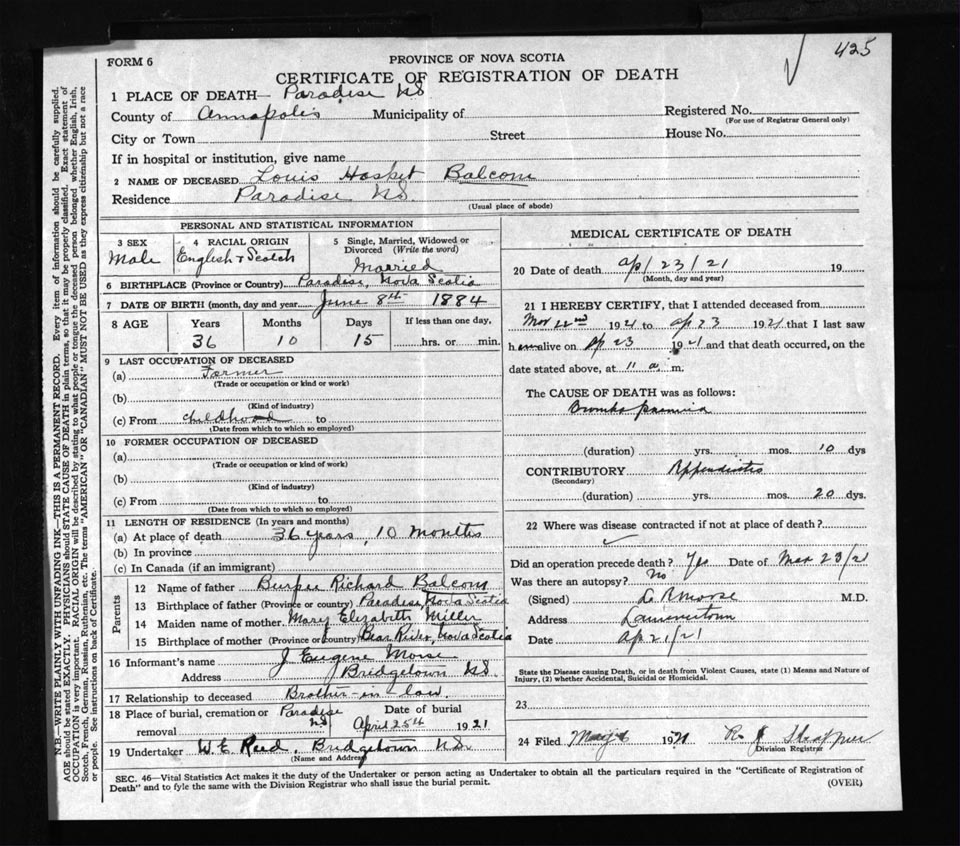 425
FORM 6
PROVINCE OF NOVA SCOTIA
CERTIFICATE OF REGISTRATION OF DEATH
1 PLACE OF DEATH— Paradise NS
County of Annapolis Municipality of Registered No.
(For use of Registrar General only)
City or Town Street House No.
If in hospital or institution, give name
2 NAME OF DECEASED Louis Hasket Balcom
Residence Paradise NS
(Usual place of abode)
PERSONAL AND STATISTICAL INFORMATION
3 SEX Male
4 RACIAL ORIGIN English & Scotch
5 Single, Married, Widowed or Divorced (Write the word) Married
6 BIRTHPLACE (Province or Country) Paradise, Nova Scotia
7 DATE OF BIRTH (month, day and year) June 8th 1884
8 AGE Years Months Days If less than one day,
36 10 15 hrs. or min.
9 LAST OCCUPATION OF DECEASED
(a) Farmer
(Trade or occupation or kind of work)
(b)
(Kind of industry)
(c) From childhood to
(Date from which to which so employed)
10 FORMER OCCUPATION OF DECEASED
(a)
(Trade or occupation or kind of work)
(b)
(Kind of industry)
(c) From to
(Date from which to which so employed)
11 LENGTH OF RESIDENCE (In years and months)
(a) At place of death 36 years, 10 months
(b) In province
(c) In Canada (if an immigrant)
Parents
12 Name of father Burpee Richard Balcom
13 Birthplace of father (Province or country) Paradise, Nova Scotia
14 Maiden name of mother Mary Elizabeth Miller
15 Birthplace of mother (Province or country) Bear River, Nova Scotia
16 Informant's name J Eugene Morse
Address Bridgetown NS.
17 Relationship to deceased Brother-in-law.
18 Place of burial, cremation or removal Paradise NS Date of burial April 25th 1921
19 Undertaker W. E. Reed, Bridgetown NS.
(Name and Address)
MEDICAL CERTIFICATE OF DEATH
20 Date of death Ap/23/21 19
(Month, day and year)
21 I HEREBY CERTIFY, that I attended deceased from
Mar 22nd 1921 to Ap 23 1921 that I last saw
him alive on Ap 23 1921 and that death occurred, on the
date stated above, at 11 a m.
The CAUSE OF DEATH was as follows:
(duration) yrs. mos. 10 dys
CONTRIBUTORY Appendicitis
(Secondary)
(duration) yrs. mos. 20 dys.
22 Where was disease contracted if not at place of death?
Did an operation precede death? Yes Date of Mar 23/21
Was there an autopsy? No
(Signed) L R Morse M.D.
Address Lawrencetown
Date Ap 21/21
State the Disease causing Death, or in death from Violent Causes, state (1) Means and Nature of
Injury, (2) whether Accidental, Suicidal or Homicidal.
23
24 Filed 1921
Division Registrar
SEC. 46—Vital Statistics Act makes it the duty of the Undertaker or person acting as Undertaker to obtain all the particulars required in the "Certificate of Registration of
Death" and to fyle the same with the Division Registrar who shall issue the burial permit. (OVER)
N.B.—WRITE PLAINLY WITH UNFADING INK—THIS IS A PERMANENT RECORD. Every item of information should be carefully supplied.
AGE should be stated EXACTLY. PHYSICIANS should STATE CAUSE OF DEATH in plain terms, so that it may be properly classified. Exact statement of
OCCUPATION is very important. RACIAL ORIGIN will be described by stating to what people or tongue the deceased person belonged whether English, Irish,
Scotch, French, German, Russian, Ruthenian, etc. The terms "AMERICAN" OR "CANADIAN" MUST NOT BE USED as they express citizenship but not a race
or people. See instructions on back of Certificate.